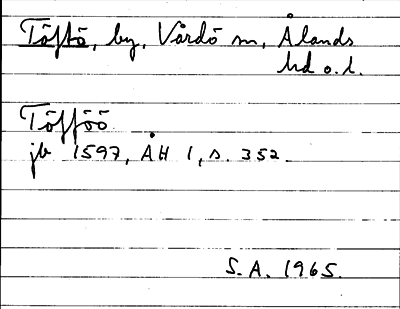 Töftö, by, Vårdö sn, Ålands
hd o. l.
Töfföö
jb 1597, ÅH 1, s. 352
S.A. 1965.